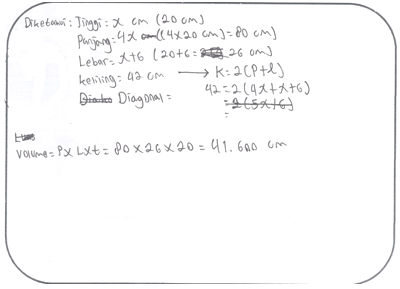 Diketahui: Tinggi: x cm (20 cm)
Panjang = 4x ((4x20 cm) = 80 cm)
Lebar = x+6 (20+6 = 26 cm)
keliling = 42 cm → K = 2(P+l)
42 = 2(4x+x+6)
Diagonal = = 2(5x+6)
=
Volume = P x L x t = 80 x 26 x 20 = 41.600 cm